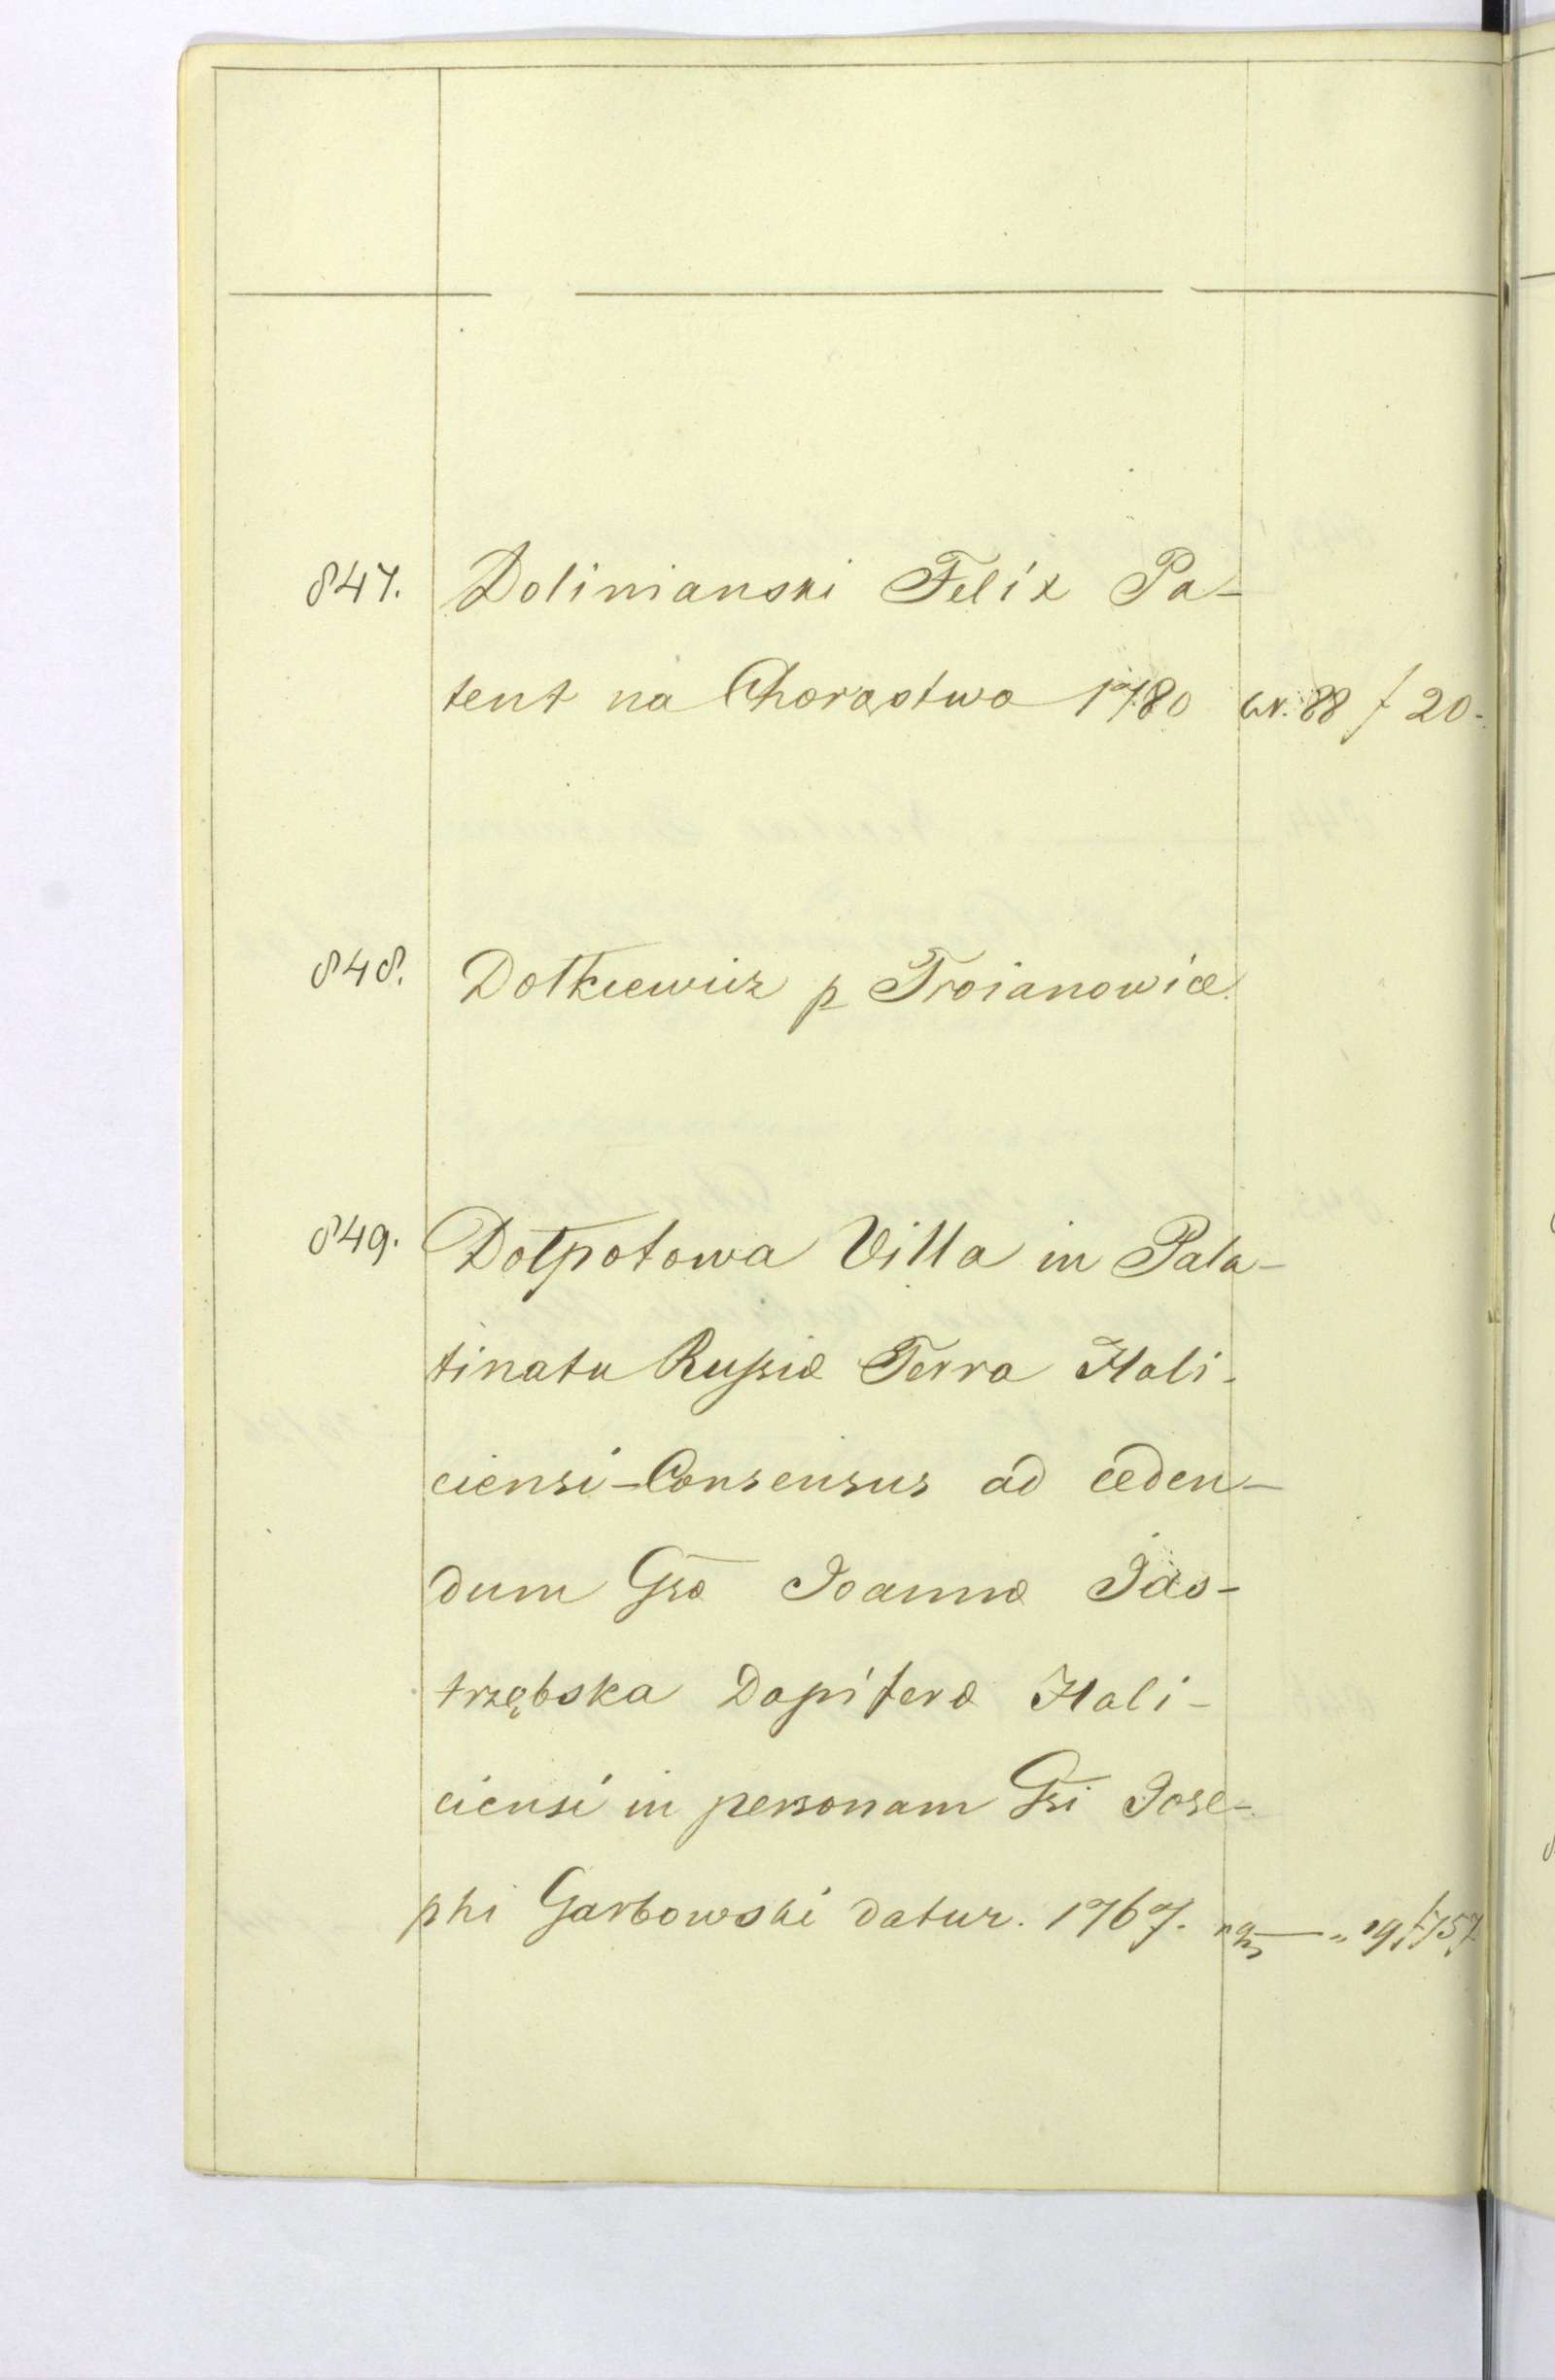 847. Dolinianski Felix Pa-
tent na Chorąstwo 1780 W. 88 f 20.
848. Dołkiewicz p Troianowice
849. Dołpotowa Villa in Pala-
tinatu Russiæ Terra Hali-
ciensi - Consensus ad ceden-
dum Gsæ Joannæ Jas-
trzębska Dapiferæ Hali-
ciensi in personam Gsi Jose-
phi Garbowski datur. 1767. 19 f 757